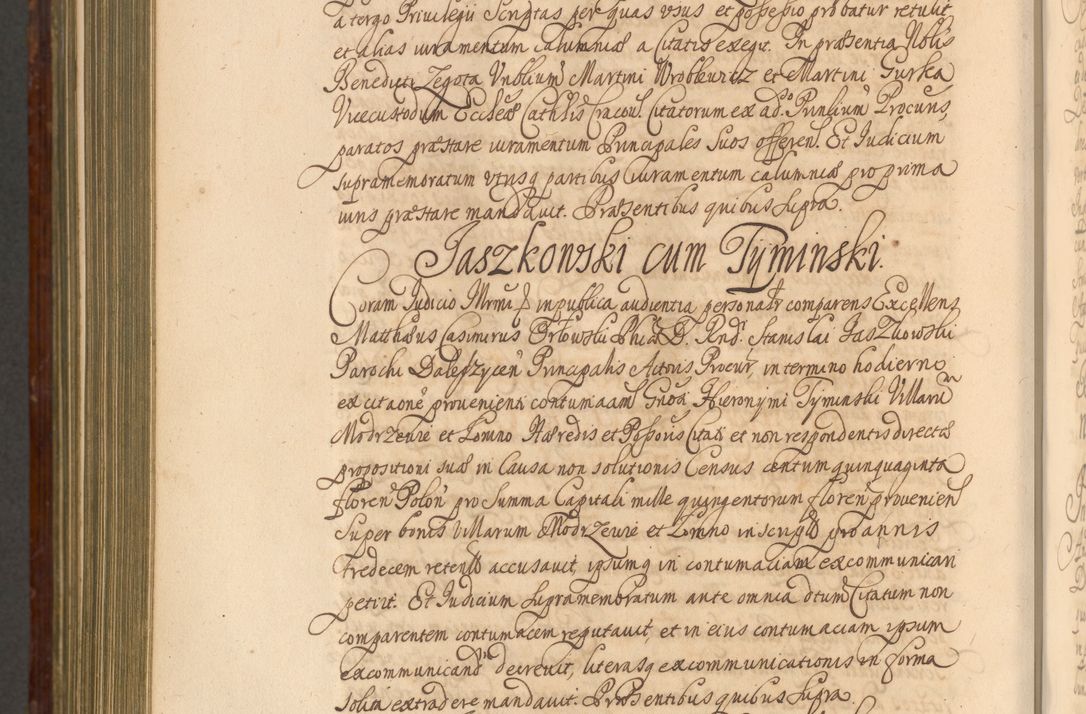 a tergo Privilegii Scriptas per quas usus et possessio probatur retulit
et alias iuramentum calumniæ a Citatis exegit. In præsentia Nobis
Benedicti Zegota Vnblium Martini Wrobkewicz et Martini Gurska
Vicecustodum Ecclæ Cathlis Cracov. Citatorum ex ad.o Prinlium Procuris,
paratos præstare iuramentum Principales suos offeren. Et Judicium
supramemoratum utrisq partibus iuramentum calumniæ pro prima
iuris præstare mandavit. Præsentibus quibus supra.
Jaszkowski cum Tyminski.
Coram Judicio in publica audientia personalr comparens Excellens
Matthæus Casimirus Orłowski Phiæ D. Rndi Stanislai Jaszkowski
Parochi Daleszycen Principalis Actoris Procur, in termino hodierno
ex citaone provenienti contumaciam Gnosi Hieronymi Tyminski Villarum
Modrzewie et Lomno Hæredis et Possoris Citati et non respondentis directæ
propositioni suæ in Causa non solutionis Census centum quinquaginta
floren Polon pro Summa Capitali mille quingentorum floren provenien
super bonis Villarum Modrzewie et Lomno inscript pro annis
tredecem retent accusavit, ipsumq in contumaciam excommunicari
petiit. Et Judicium supramembratum ante omnia dtum Citatum non
comparentem contumacem reputavit, et in eius contumaciam ipsum
excommunicand decrevit, literasq excommunicationis in forma
solita extradere mandavit. Præsentibus quibus supra.